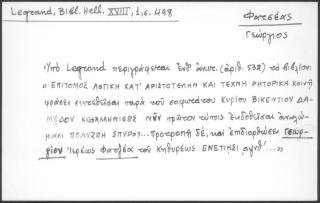 Legrand, Bibl. Hell. XVIII, 1, σ. 498
Φατσέας
Γεώργιος
Ὑπὸ Legrand περιγράφεται ἐνθ' ἀνωτ. (ἀριθ. 532) τὸ βιβλίον:
« ΕΠΙΤΟΜΟΣ ΛΟΓΙΚΗ ΚΑΤ' ΑΡΙΣΤΟΤΕΛΗΝ ΚΑΙ ΤΕΧΝΗ ΡΗΤΟΡΙΚΗ κοινῇ
φράσει συντεθεῖσα παρὰ τοῦ σοφωτάτου Κυρίου ΒΙΚΕΝΤΙΟΥ ΔΑ-
ΜΟΔΟΥ ΚΕΦΑΛΛΗΝΙΕΩΣ ΝῦΝ πρῶτον τύποις ἐκδοθεῖσα ἀναλώ-
μασι ΠΟΛΥΖΩΗ ΣΠΥΡΟΥ... Προτροπῇ δὲ, καὶ ἐπιδιορθώσει Γεωρ-
γίου Ἱερέως Φατζέα τοῦ Κηθυρέως ΕΝΕΤΙΗΣΙ αψνθ'...»